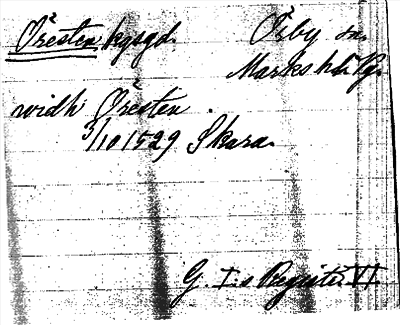 Öresten kgsgd. Örby sn.
Marks hd Vg.
widh Öresten.
3/10 1529 Skara.
G. I:s Registr. VI.